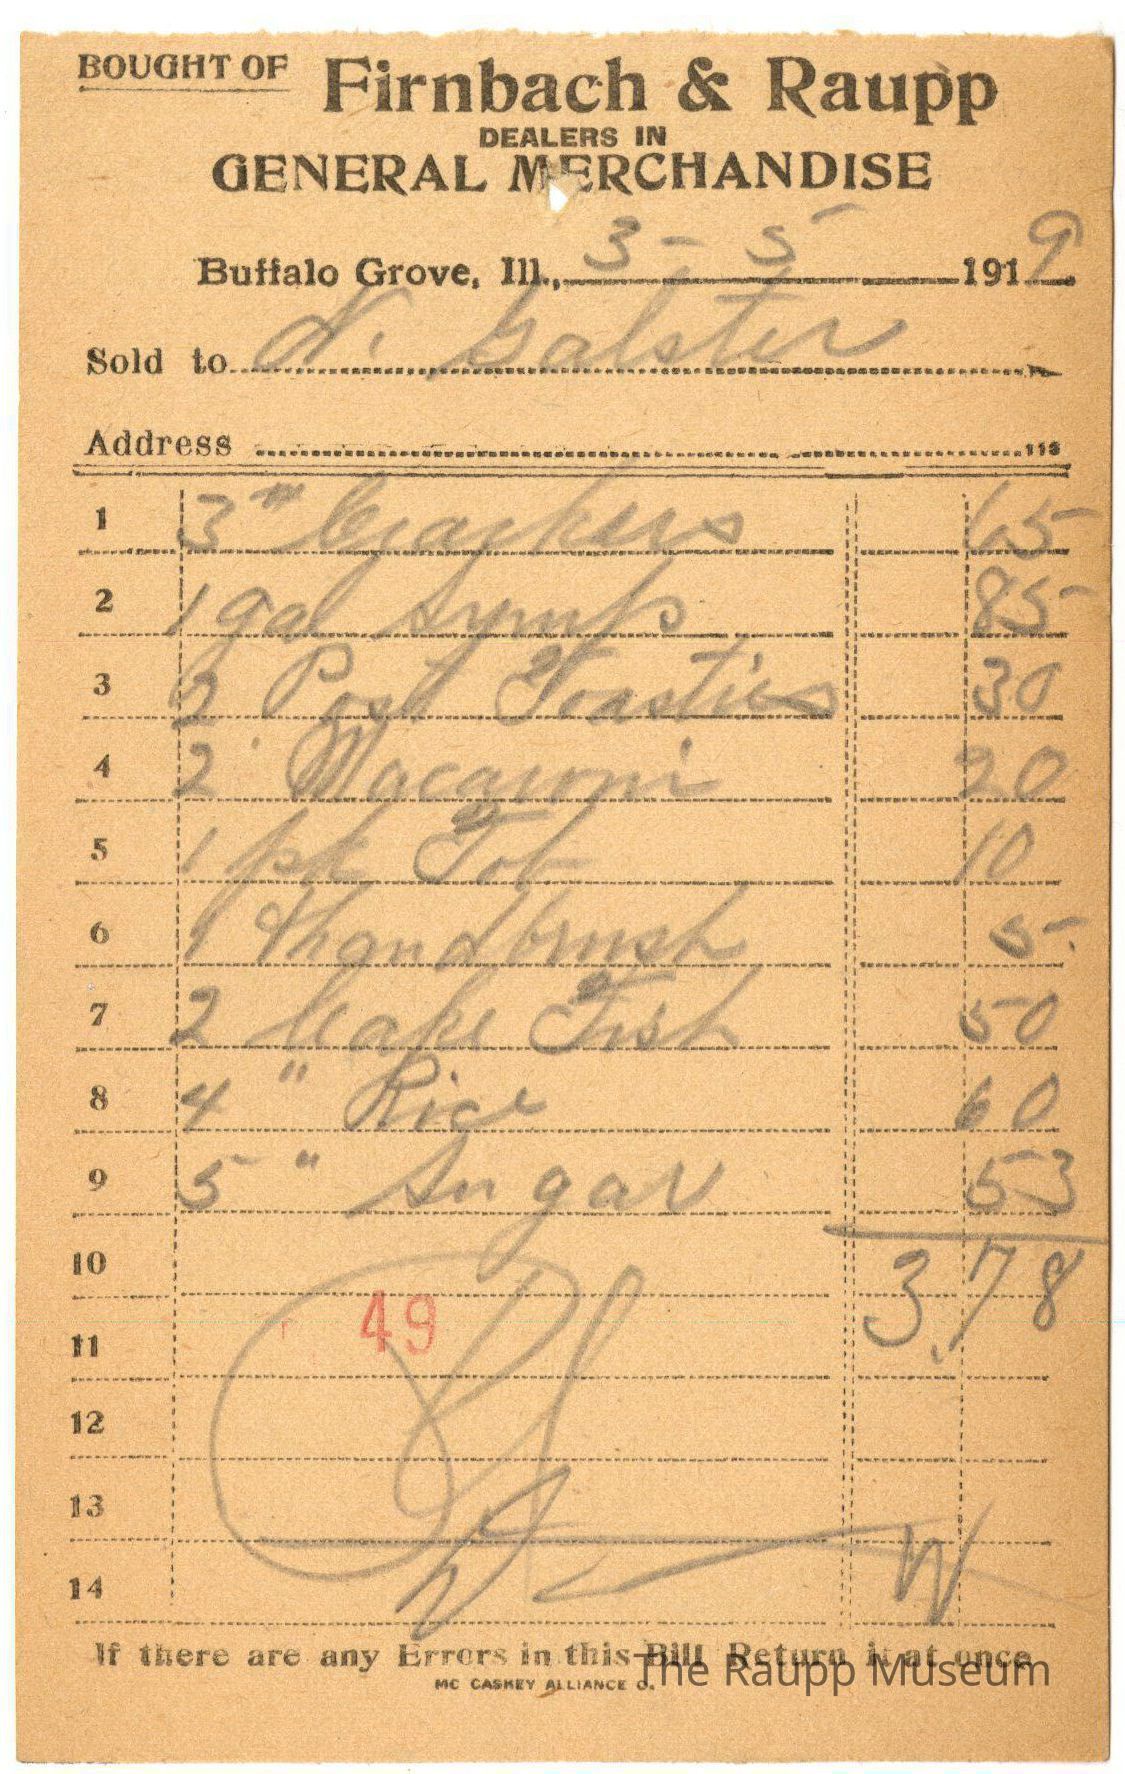 BOUGHT OF Firnbach & Raupp
DEALERS IN
GENERAL MERCHANDISE
Buffalo Grove, Ill., 3-5 1919
Sold to N. Galster
Address 113
1 3 " Crackers 65
2 1 gal Syrup 85
3 2 Post Toasties 30
4 2 Macaroni 20
5 1 pk Tob 10
6 1 Handbrush 5
7 2 Cake Fish 50
8 4 " Rice 60
9 5 " Sugar 53
10 3.78
49
11
12
13
14
If there are any Errors in this Bill Return it at once
MC CASKEY ALLIANCE O.
The Raupp Museum